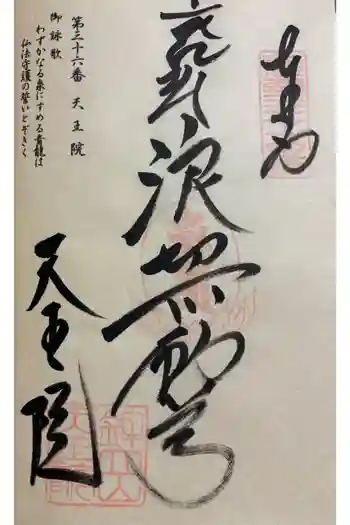 奉拝
沢不動尊
第三十六番　天王院
御詠歌
わずかなる泉にすめる青龍は
仏法守護の誓いとぞきく
天王院